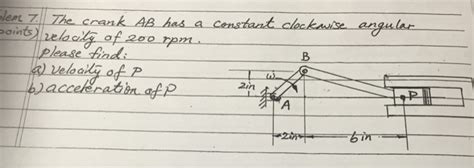 lem 7. The crank AB has a constant clockwise angular
points) velocity of 200 rpm.
please find:
a) velocity of P
b) acceleration of P
B
ω
2in
A
P
2in
6in